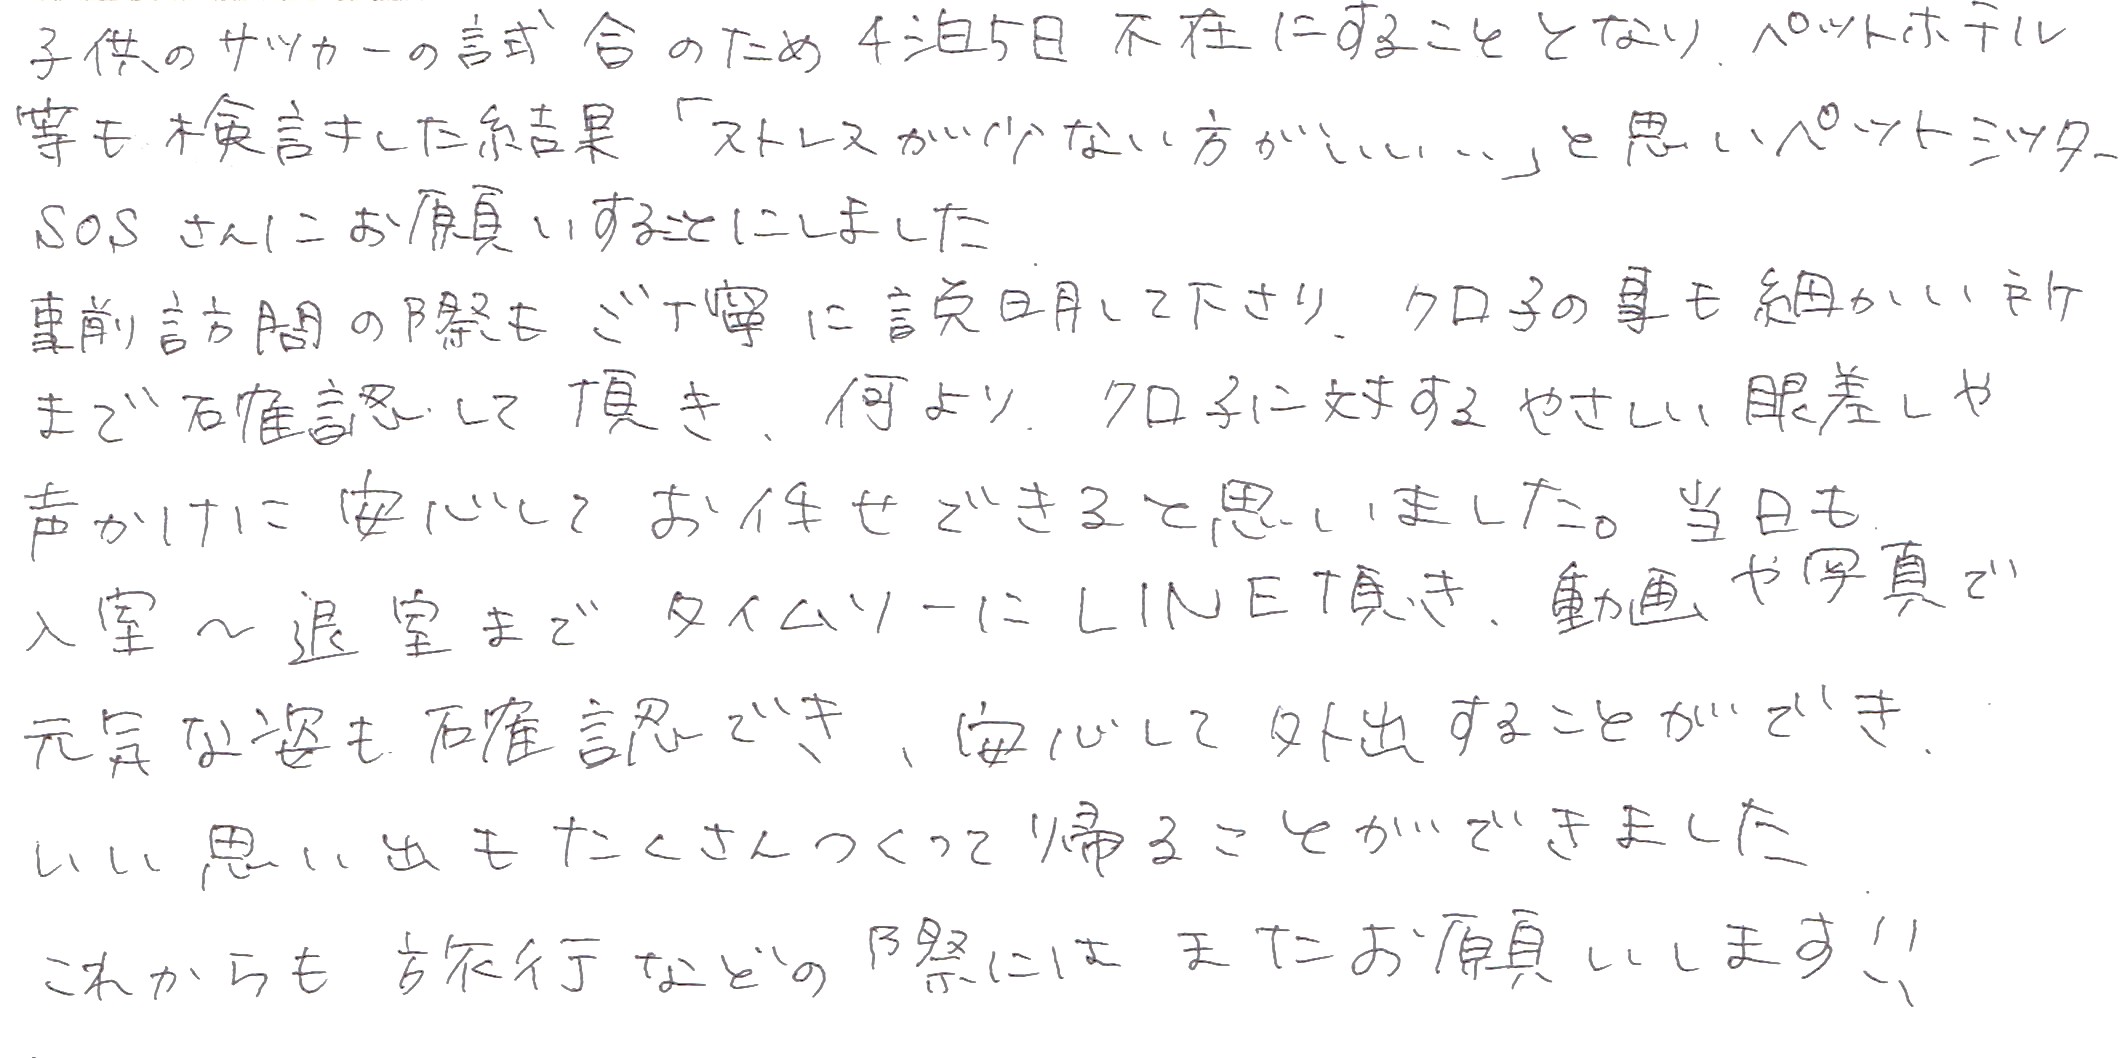 子供のサッカーの試合のため4泊5日不在にすることとなり、ペットホテル
等も検討した結果「ストレスが少ない方がいい…」と思いペットシッター
SOSさんにお願いすることにしました
事前訪問の際もご丁寧に説明して下さり、クロ子の事も細かい所
まで確認して頂き、何より、クロ子に対するやさしい眼差しや
声かけに安心してお任せできると思いました。当日も
入室～退室までタイムリーにLINE頂き、動画や写真で
元気な姿も確認でき、安心して外出することができ、
いい思い出もたくさんつくって帰ることができました
これからも旅行などの際にはまたお願いします!!